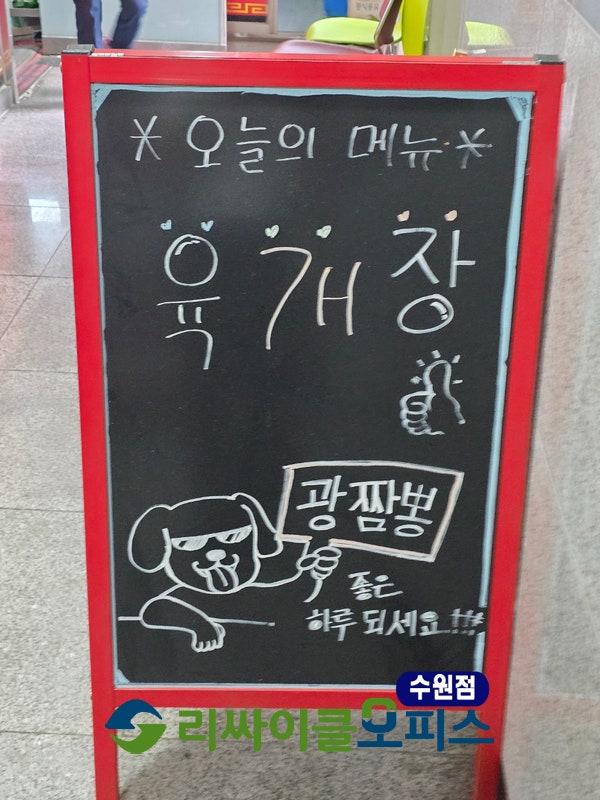 * 오늘의 메뉴 *
육개장
광짬뽕
좋은
하루 되세요!!!
수원점
리싸이클오피스